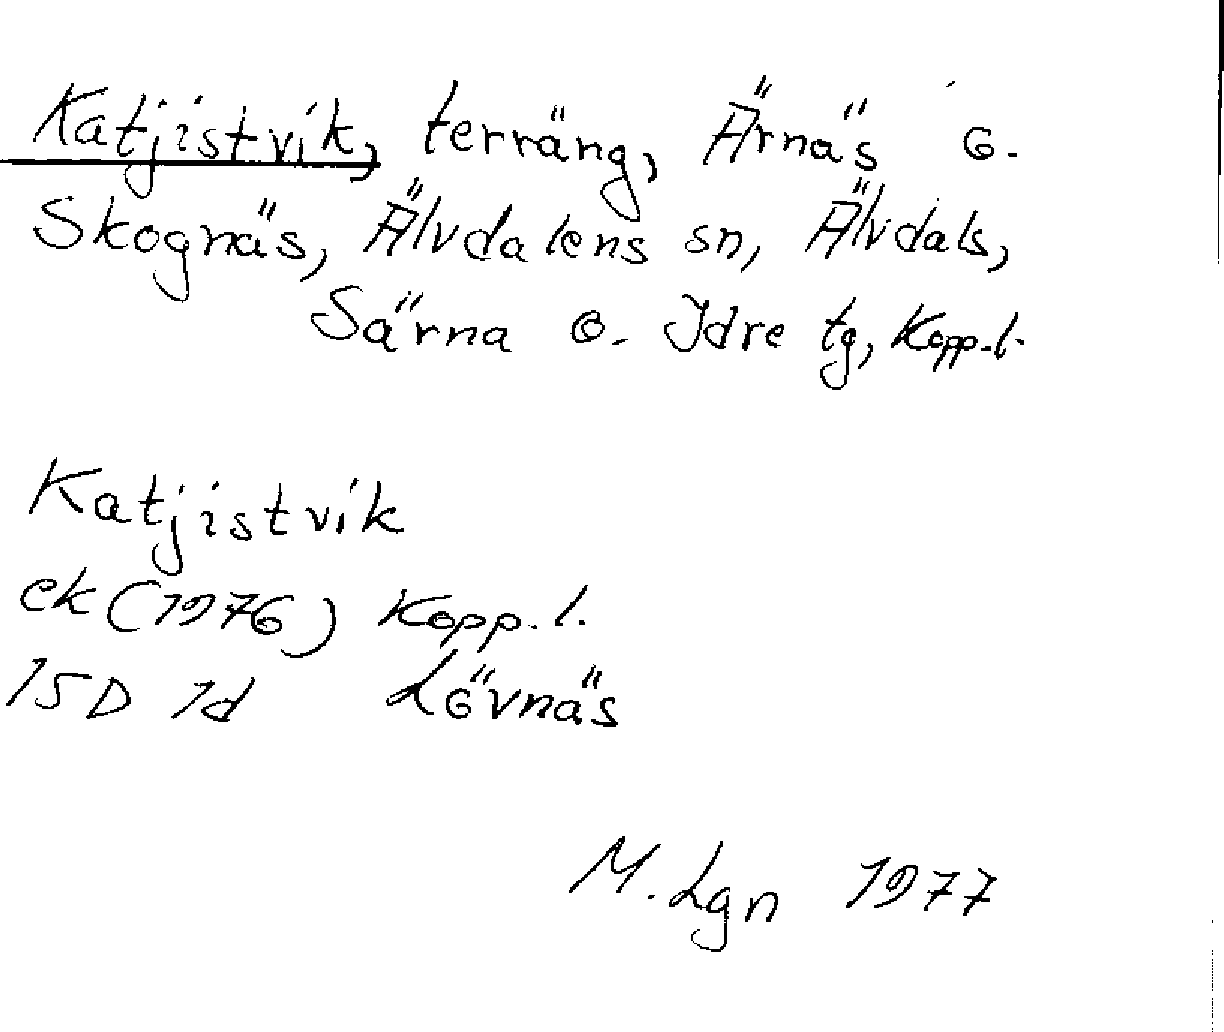 Katjistvik, terräng, Ärnäs o.
Skognäs, Älvdalens sn, Älvdals,
Särna o. Idre tg, Kopp.l.
Katjistvik
ek (1976) Kopp. l.
15D 1d Lövnäs
M. Lgn 1977